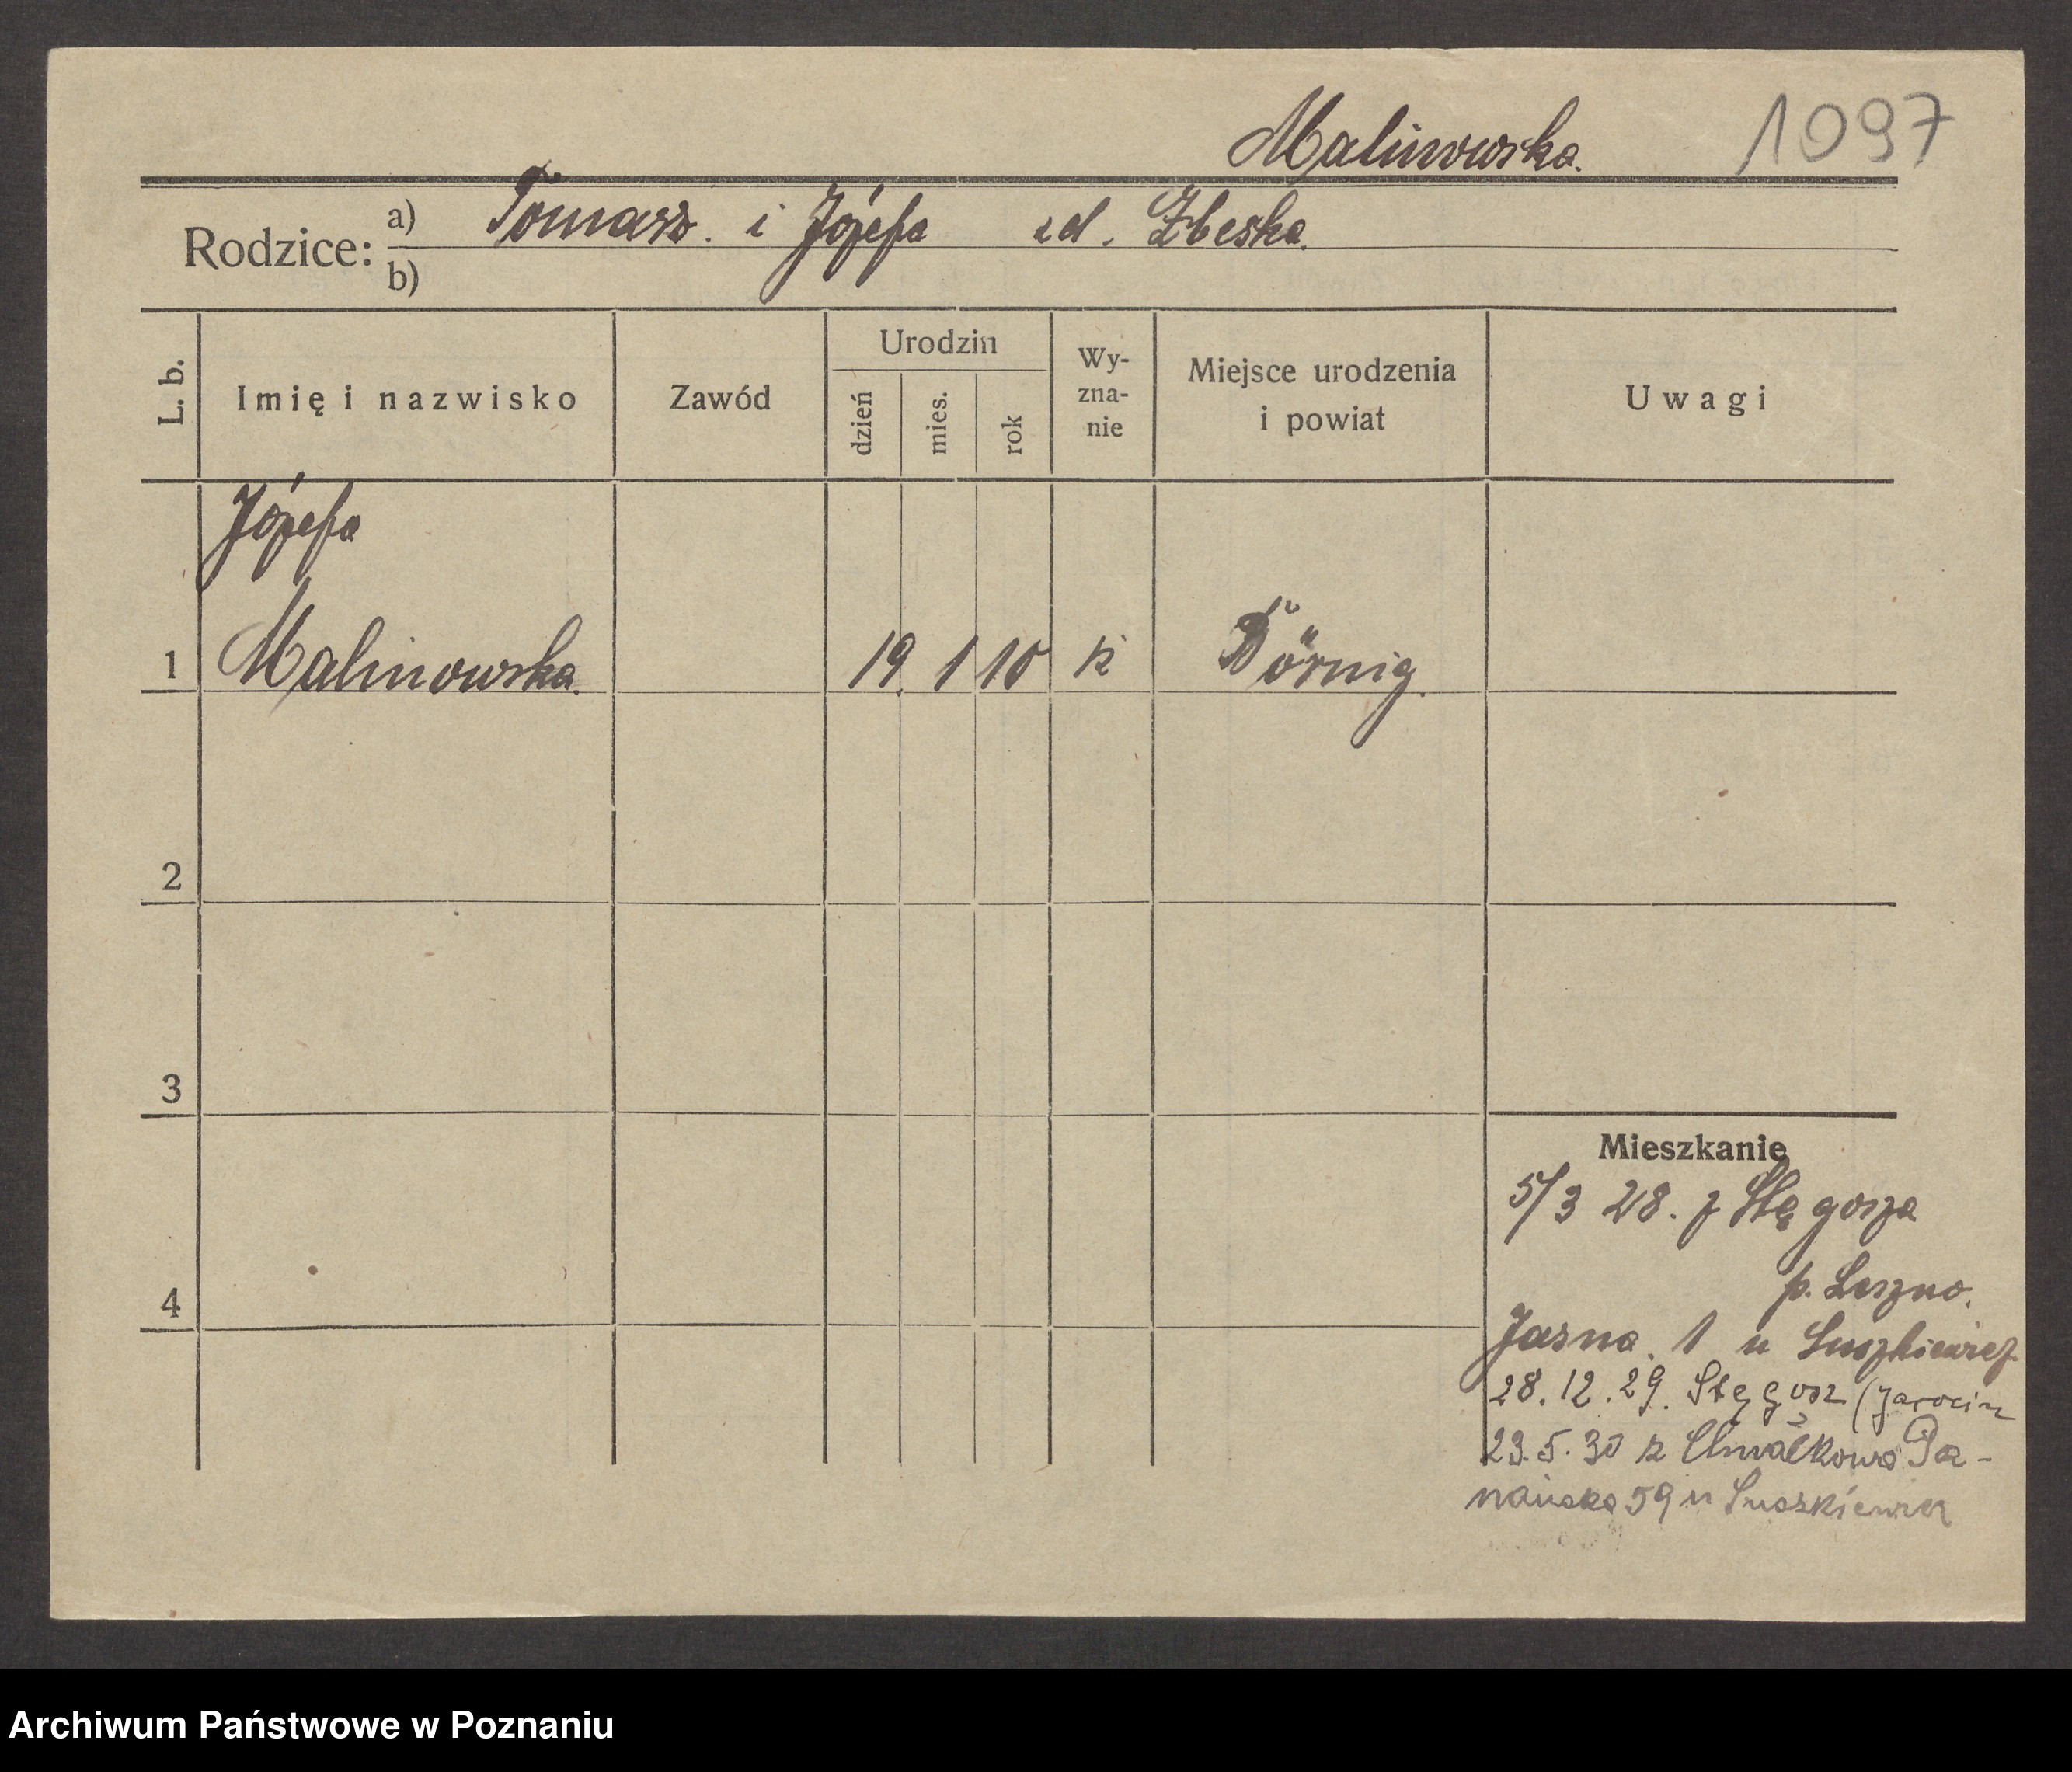 Malinowska. 1097
Rodzice: a) Tomasz. i Józefa zd. Zbeska.
b)
L. b. Imię i nazwisko Zawód Urodzin dzień mies. rok Wy-zna-nie Miejsce urodzenia i powiat Uwagi
Józefa
1 Malinowska. 19 1 10 k Börnig.
2
3
Mieszkanie
5/3 28. z Stęgosza
p. Leszno.
4
Jasna. 1 u Suszkiewicz
28.12.29. Stęgosz (Jarocin
23.5.30 z Chwałkowa Poz-
nańska 59 u Suszkiewicz
Archiwum Państwowe w Poznaniu